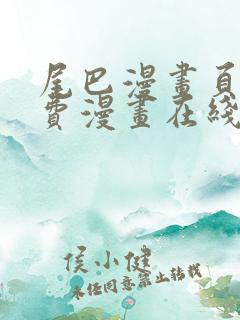 尾巴漫畫頁
費漫畫在綫
侯小健
未经同意禁止转载